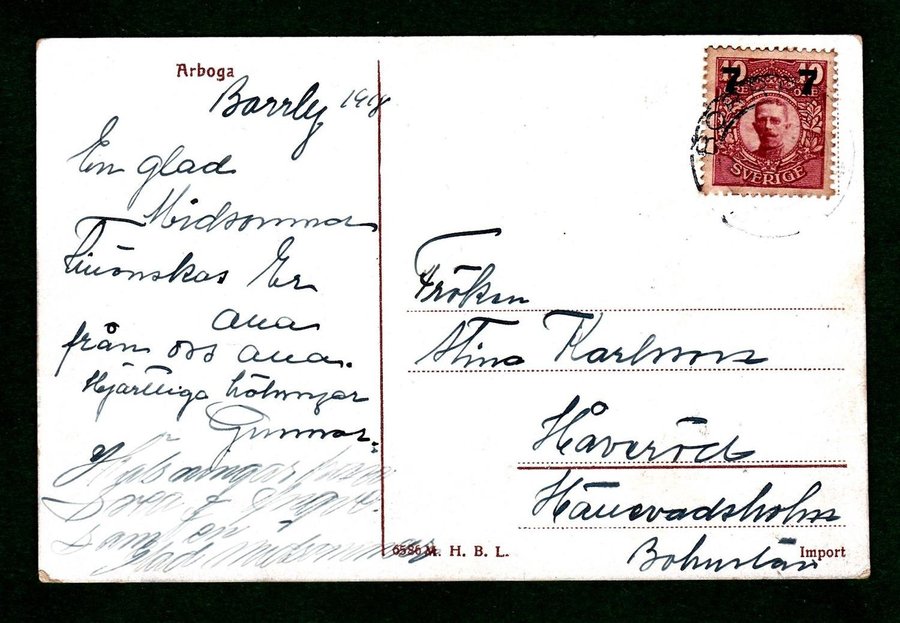 Arboga
Borrby 1918
En glad
Midsommar
Tillönskas Er
alla
från oss alla.
Hjärtliga hälsningar
Gunnar.
Hälsningar
Dora & Yngve
Samt en
Glad midsommar
7 7
10 10
SVERIGE
Fröken
Stina Karlsson
Håveröd
Hällevadsholm
Bohuslän
6586 M. H. B. L.
Import